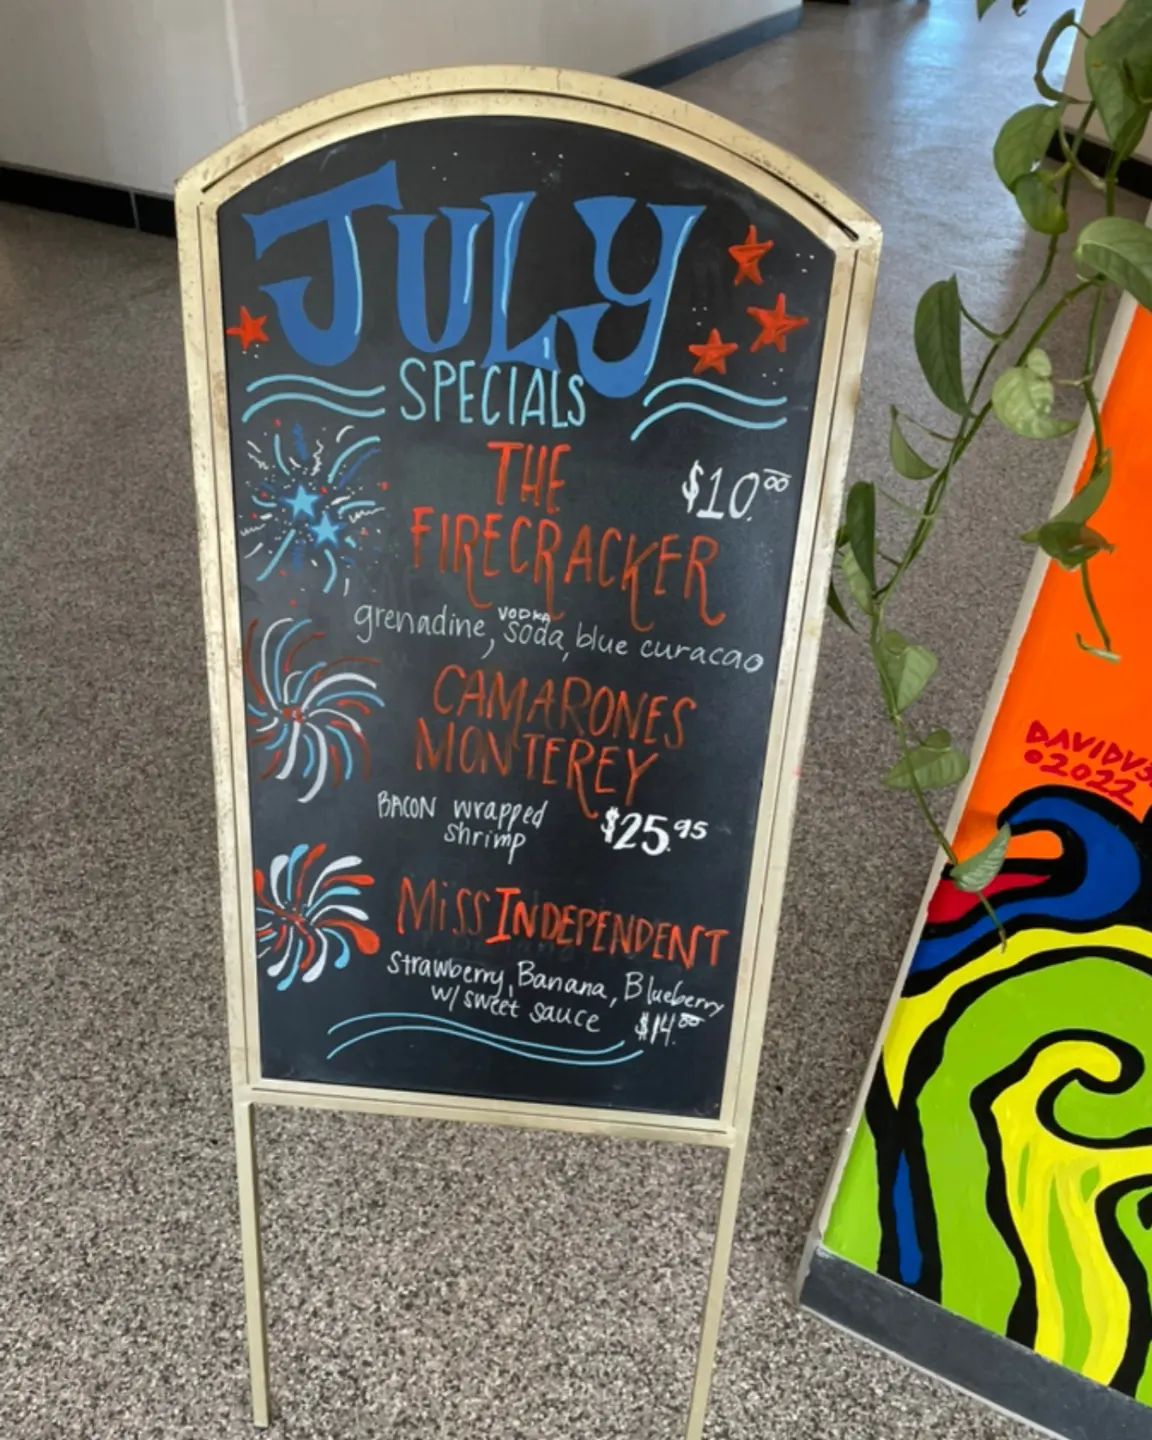 JULY
SPECIALS
THE
FIRECRACKER
$10.00
VODKA
grenadine, soda, blue curacao
CAMARONES
MONTEREY
BACON wrapped
shrimp
$25.95
MiSS INDEPENDENT
Strawberry, Banana, Blueberry
w/ sweet sauce $14.00
©2022